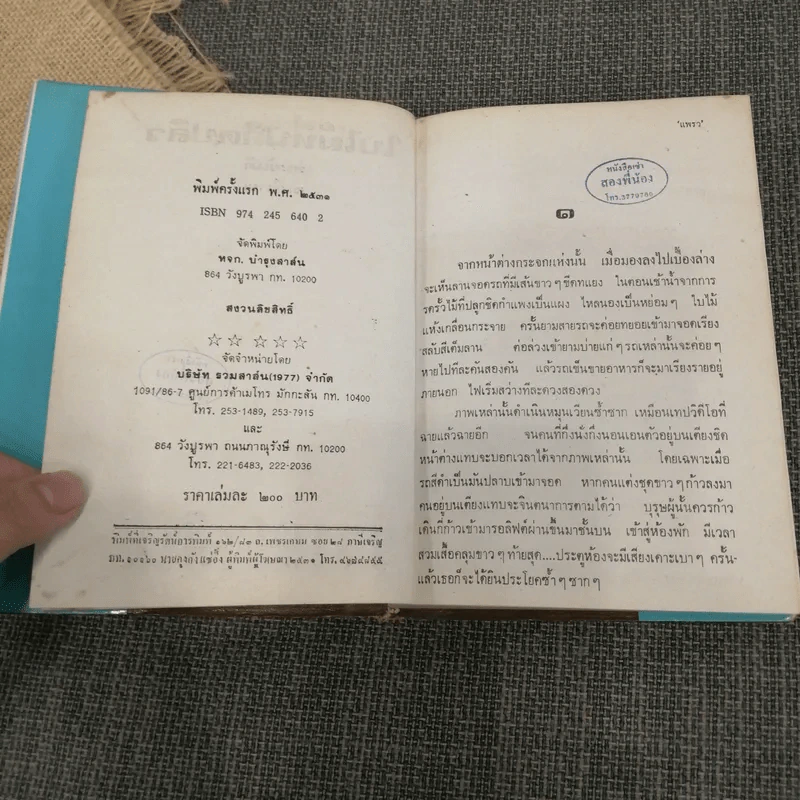 พิมพ์ครั้งแรก พ.ศ. ๒๕๓๑
ISBN 974 245 640 2
จัดพิมพ์โดย
หจก. บำรุงสาส์น
864 วังบูรพา กท. 10200
สงวนลิขสิทธิ์
☆ ☆ ☆ ☆ ☆
จัดจำหน่ายโดย
บริษัท รวมสาส์น(1977) จำกัด
1091/86-7 ศูนย์การค้าเมโทร มักกะสัน กท. 10400
โทร. 253-1489, 253-7915
และ
864 วังบูรพา ถนนภาณุรังษี กท. 10200
โทร. 221-6483, 222-2036
ราคาเล่มละ ๒๐๐ บาท
๑๖๒/๘๓ ถ. เพชรเกษม ซอย ๒๘ ภาษีเจริญ
กท. ๑๐๑๖๐ ผู้พิมพ์ผู้โฆษณา ๒๕๓๑ โทร. ๔๖๗๙๘๕๕
'แพรว'
หนังสือเช่า
สองพี่น้อง
โทร.3779780
๑
จากหน้าต่างกระจกแห่งนั้น เมื่อมองลงไปเบื้องล่าง
จะเห็นลานจอดรถที่มีเส้นขาวๆ ขีดทแยง ในตอนเช้าน้ำจากการ
รดรั้วไม้ที่ปลูกชิดกำแพงเป็นแผง ไหลนองเป็นหย่อมๆ ใบไม้
แห้งเกลื่อนกระจาย ครั้นยามสายรถจะค่อยทยอยเข้ามาจอดเรียง
สลับสีเต็มลาน ต่อล่วงเข้ายามบ่ายแก่ๆ รถเหล่านั้นจะค่อยๆ
หายไปทีละคันสองคัน แล้วรถเข็นขายอาหารก็จะมาเรียงรายอยู่
ภายนอก ไฟเริ่มสว่างทีละดวงสองดวง
ภาพเหล่านี้ดำเนินหมุนเวียนซ้ำซาก เหมือนเทปวิดีโอที่
ฉายแล้วฉายอีก จนคนที่กึ่งนั่งกึ่งนอนเอนตัวอยู่บนเตียงชิด
หน้าต่างแทบจะบอกเวลาได้จากภาพเหล่านั้น โดยเฉพาะเมื่อ
รถสีดำเป็นมันปลาบเข้ามาจอด หากคนแต่งชุดขาวๆ ก้าวลงมา
คนอยู่บนเตียงแทบจะจินตนาการตามได้ว่า บุรุษผู้นั้นควรก้าว
เดินก็ก้าวเข้ามารอลิฟต์ผ่านขึ้นมาชั้นบน เข้าสู่ห้องพัก มีเวลา
สวมเสื้อคลุมขาวๆ ท้ายสุด....ประตูห้องจะมีเสียงเคาะเบาๆ ครั้น-
แล้วเธอก็จะได้ยินประโยคซ้ำๆ ซากๆ